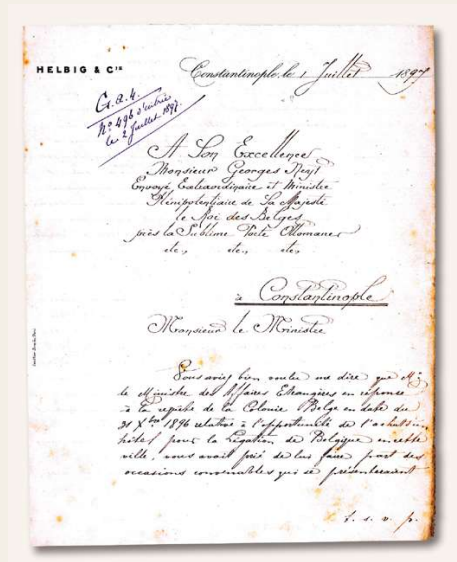 HELBIG & Cie
Constantinople, le 1 Juillet 1897
G. a. 4.
No 496 d'entrée
le 2 Juillet 1897.
A Son Excellence
Monsieur Georges Neyt
Envoyé Extraordinaire et Ministre
Plénipotentiaire de Sa Majesté
le Roi des Belges
près la Sublime Porte Ottomane
etc., etc., etc.,
à Constantinople
Monsieur le Ministre
Vous aviez bien voulu me dire que Mr
le Ministre des Affaires Etrangères en réponse
à la requête de la Colonie Belge en date du
31 Xbre 1896 relative à l'opportunité de l'achat d'un
hôtel pour la Légation de Belgique en cette
ville, vous avait prié de lui faire part des
occasions convenables qui se présenteraient
t. s. v. p.